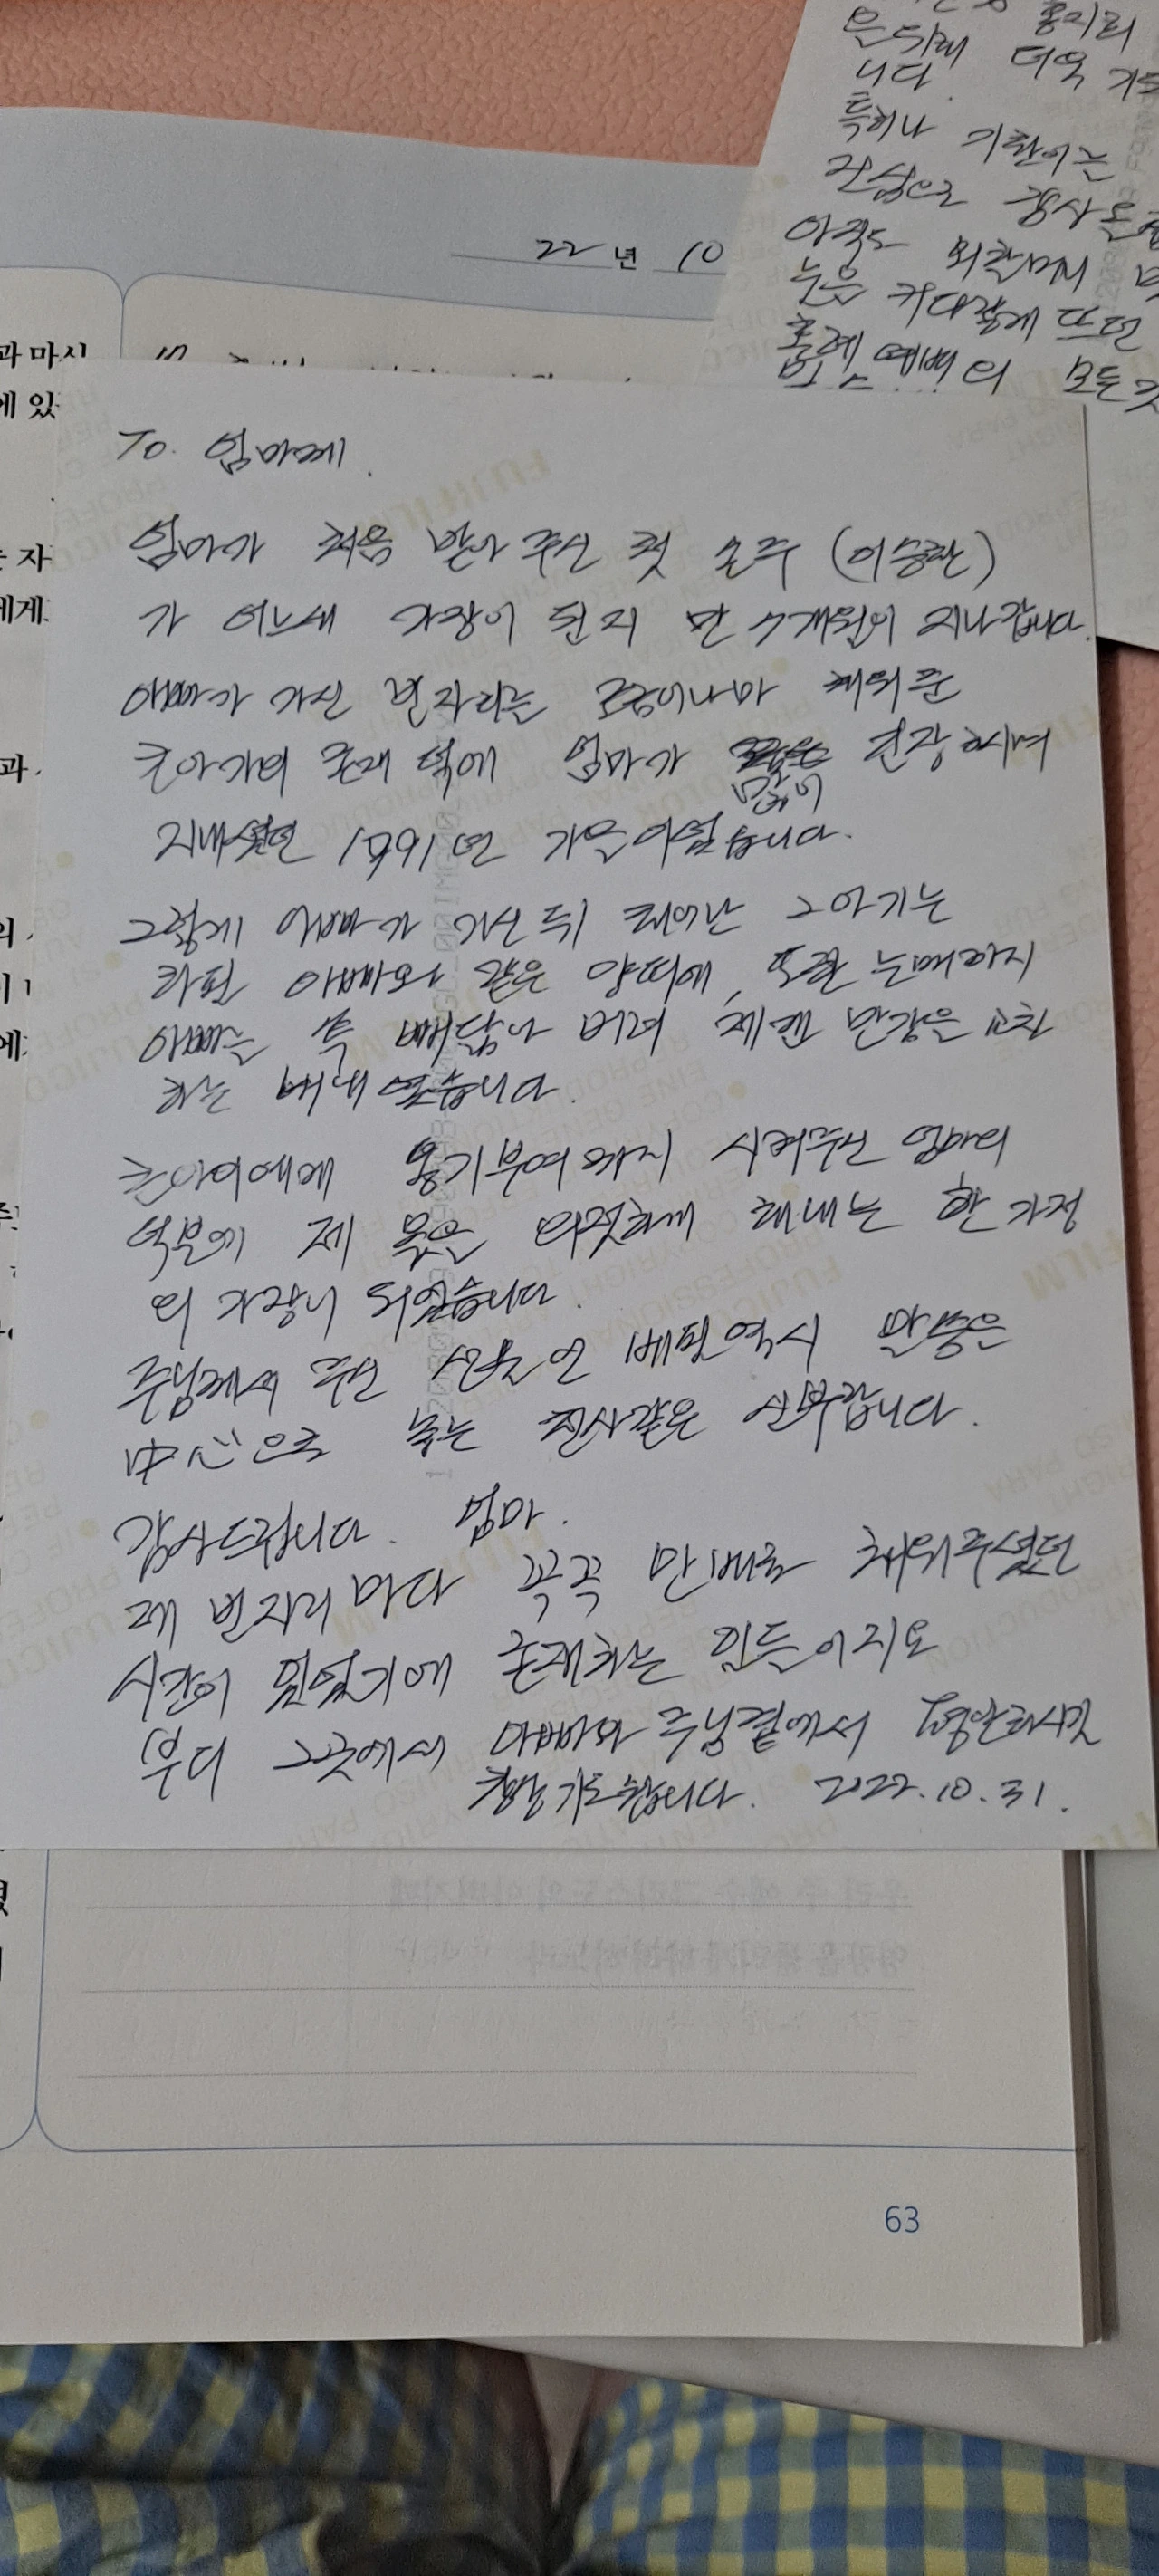 용기리
은 뒤라 더욱
니다.
특히나 기환이는
진심으로 행사를
아직도 외할머니
눈을 커다랗게 뜨던
혼례 예배의 모든 것
22년 10
과 마시
에 있
To. 엄마께.
엄마가 처음 받아 주신 첫 손주 (이승환)
가 어느새 가장이 된지 만 7개월이 지나갑니다.
아빠가 가신 빈자리는 조금이나마 채워준
큰아기의 존재 덕에 엄마가 많이 건강하시며
지내셨던 1991년 가을이었습니다.
그렇게 아빠가 가신 뒤 태어난 그 아기는
하필 아빠와 같은 양띠에, 또한 눈매까지
아빠를 쏙 빼닮아 버려 제겐 만감을 교차
하는 베베였습니다.
큰아이에게 동기부여까지 시켜주신 엄마의
덕분에 제 몫을 의젓하게 해내는 한 가정
의 가장이 되었습니다.
주님께서 주신 선물인 베필 역시 말씀을
中心으로 놓는 천사같은 신부랍니다.
감사드립니다. 엄마.
제 빈자리마다 꼭꼭 만배로 채워주셨던
시간이 있었기에 존재하는 일들이지요
부디 그곳에서 아빠와 주님곁에서 평안하시길
기도합니다. 2022.10.31.
63